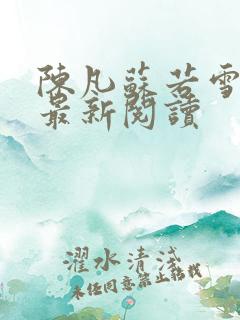 陳凡蘇若雪
最新閱讀
濯水清淺
未經同意禁止轉載